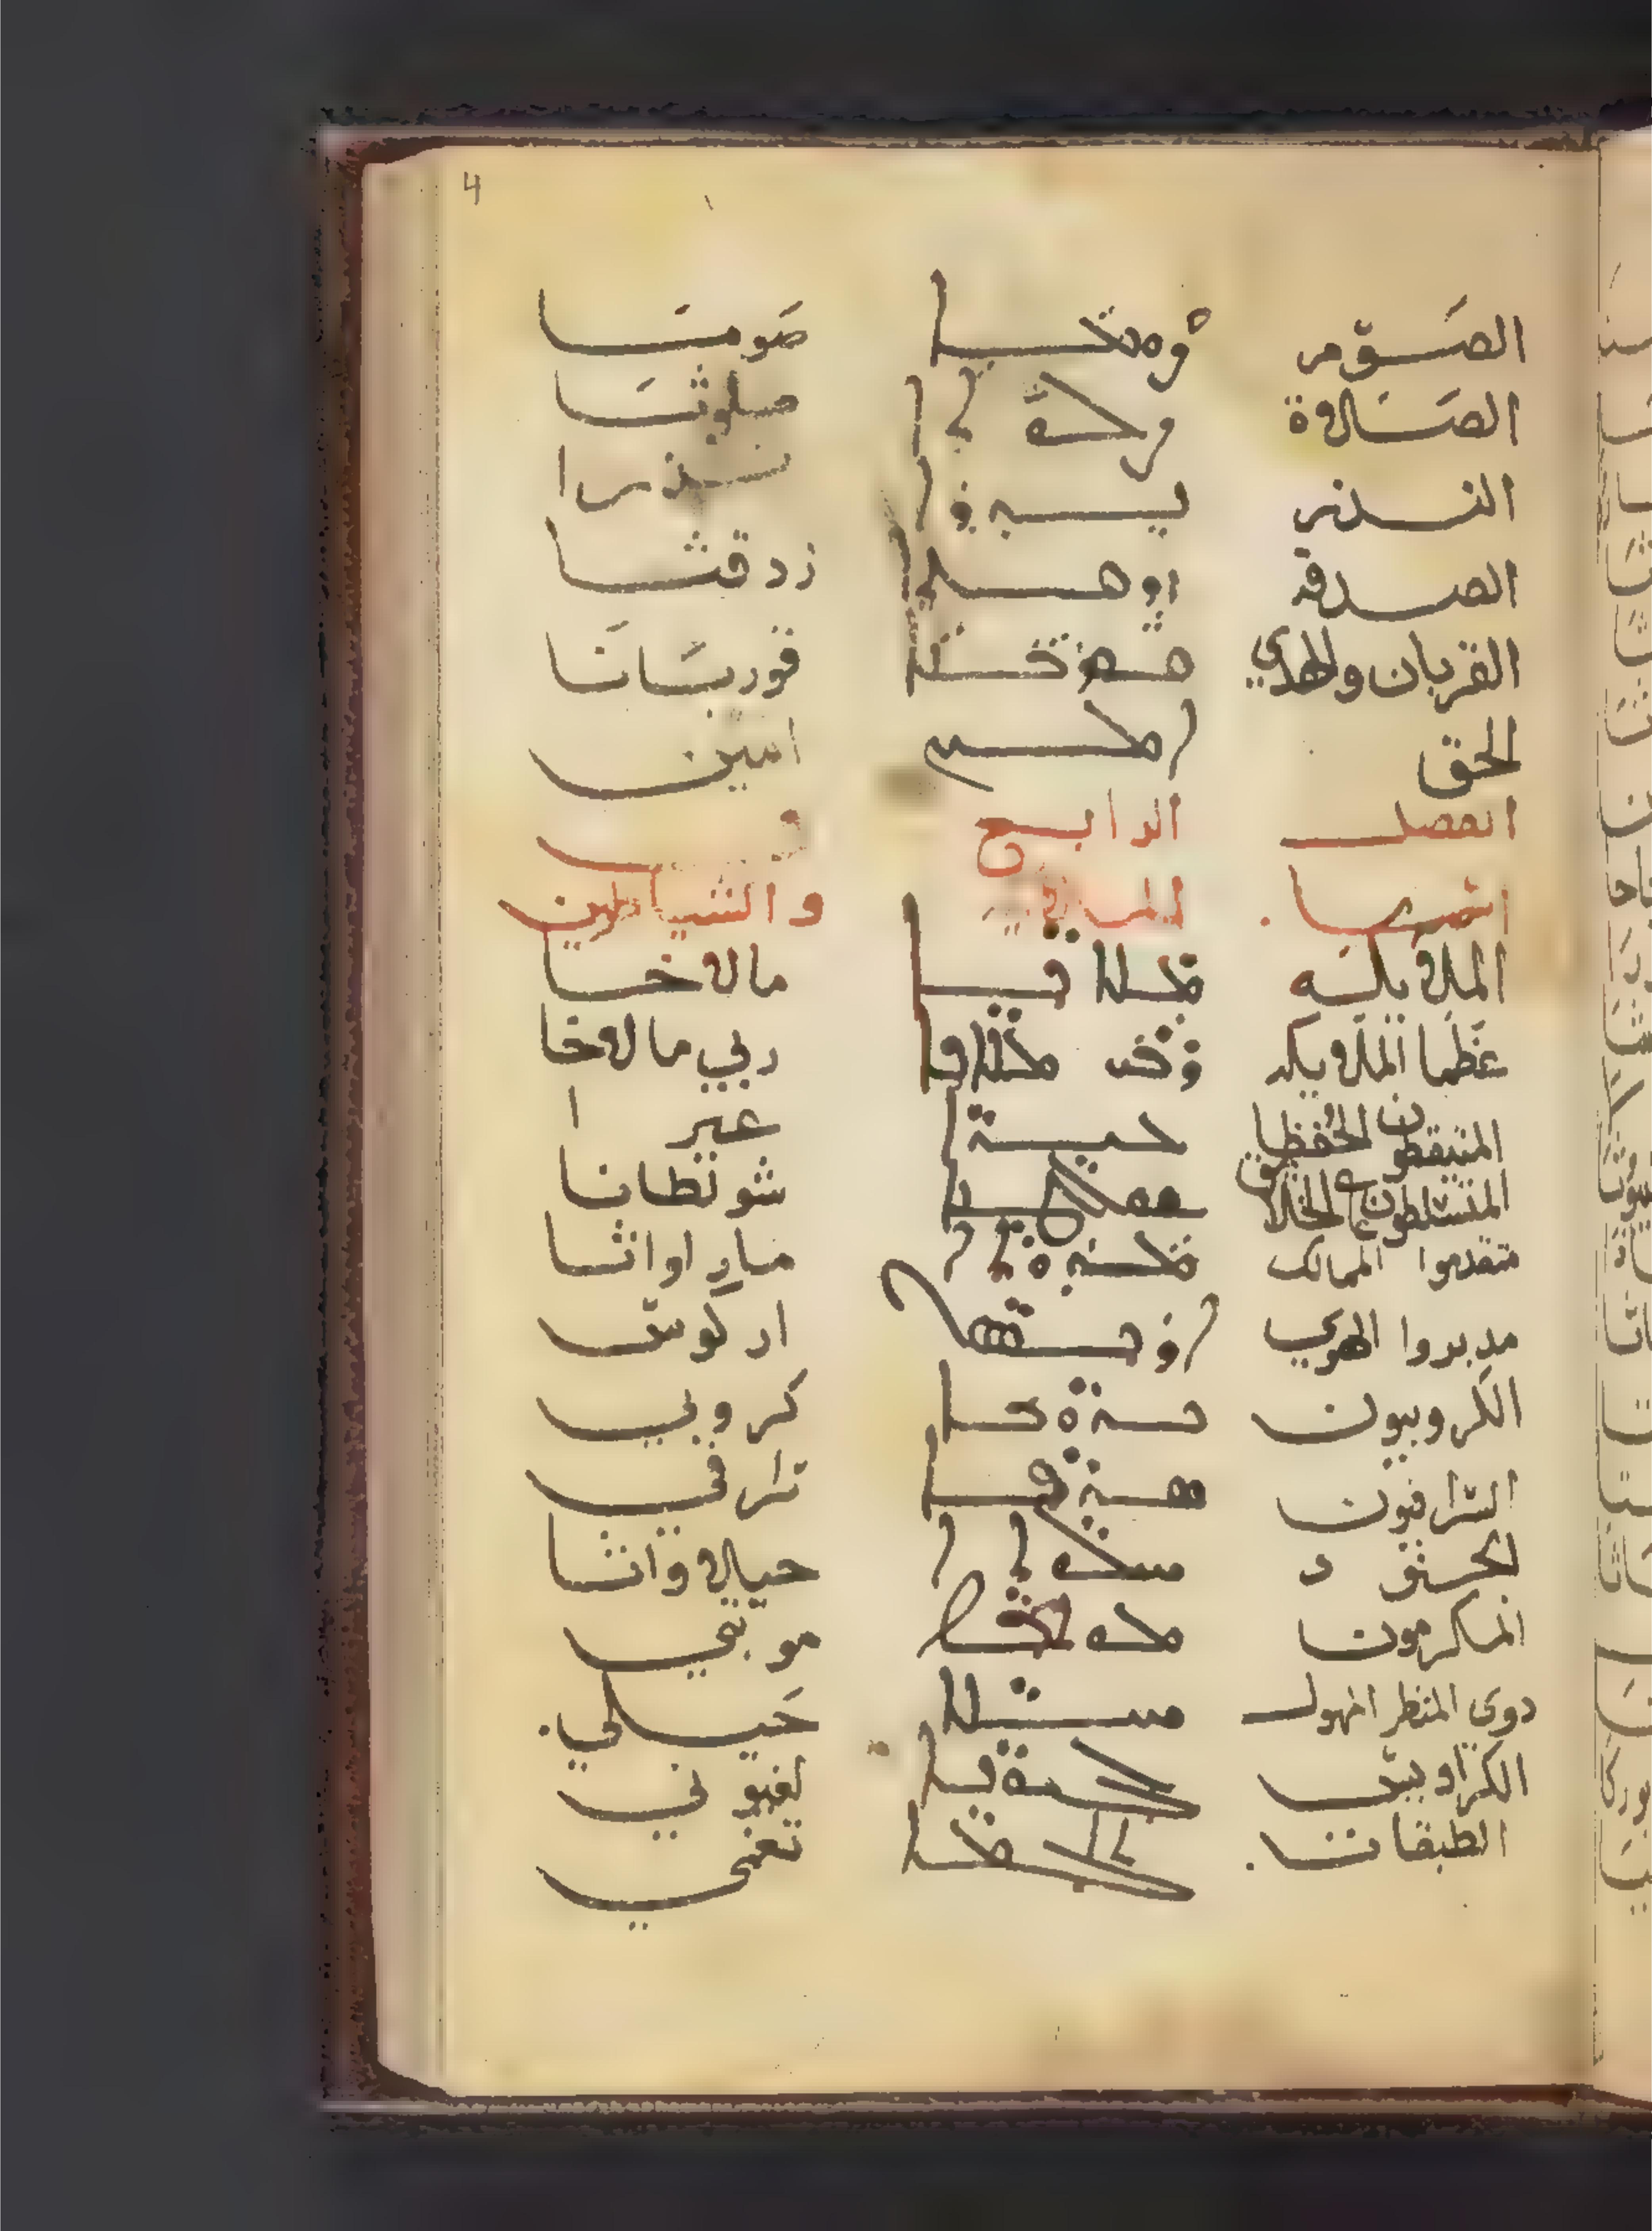 4
الصَوم ܨܘܡܐ صَومَا
الصَلاة ܨܠܘܬܐ صلوثَا
النذر ܢܕܪܐ نذرا
الصدقه ܙܕܩܬܐ زدقثا
القربان والهدي ܩܘܪܒܢܐ قوربَانَا
الحق ܐܡܝܢ امين
الفصل الرابع في
اسما والشياطين
الملايكَه ܡܠܐܟܐ مالاخا
عَظما الملايكه ܪܒܝ ܡܠܐܟܐ ربي مالاخا
المتيقظون الحفظا ܥܝܪܐ عيرا
المتسلطون الخلايق ܫܘܠܛܢܐ شولطانا
متقدموا الممالك ܡܪܘܬܐ مار اواثا
مدبروا ܐܪܟܘܣ اركوس
الكروبيون ܟܪܘܒܐ كروبي
السرافيون ܣܪܦܐ سرافي
الجنود ܚܝܠܘܬܐ حيالاواثا
موتبي
ذوي المنظر المهول ܚܝܠܐ حَيلي
الكراديس ܠܓܝܘܢܐ لغيوني
الطبقات ܬܓܡܐ تغمي